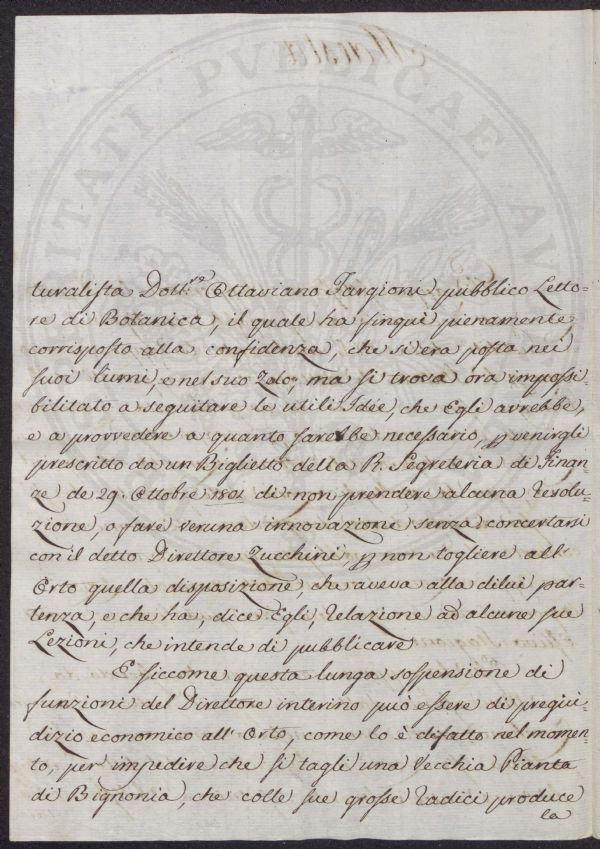 PUBLICAE
turalista Dott.re Ottaviano Targioni pubblico Letto=
re di Botanica, il quale ha finquì pienamente
corrisposto alla confidenza, che si era posta nei
suoi lumi, e nel suo Zelo, ma si trova ora impossi
bilitato a seguitare le utili Idée, che Egli avrebbe,
e a provvedere a quanto sarebbe necessario, p venirgli
prescritto da un Biglietto della R. Segreteria di Finan
ze de 29. Ottobre 1801 di non prendere alcuna resolu
zione, o fare veruna innovazione senza concertarsi
con il detto Direttore Zucchini, p non togliere all'
Orto quella disposizione, che aveva alla dilui par=
tenza, e che ha, dice Egli, relazione ad alcune sue
Lezioni, che intende di pubblicare
E siccome questa lunga sospensione di
funzioni del Direttore interino può essere di pregiu=
dizio economico all'Orto, come lo è difatto nel momen=
to, per impedire che si tagli una Vecchia Pianta
di Bignonia, che colle sue grosse radici produce
la